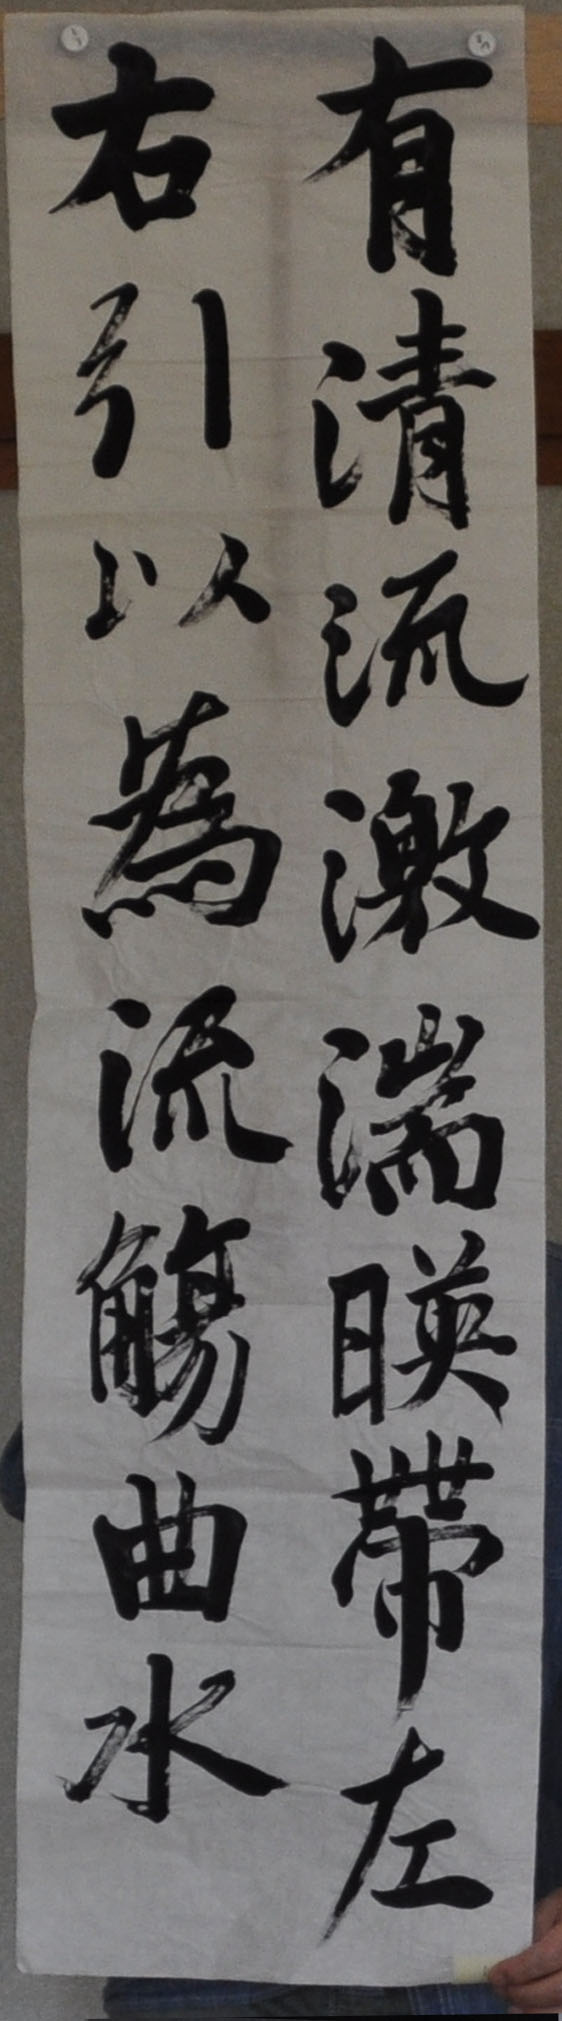 有清流激湍暎帶左
右引以為流觴曲水